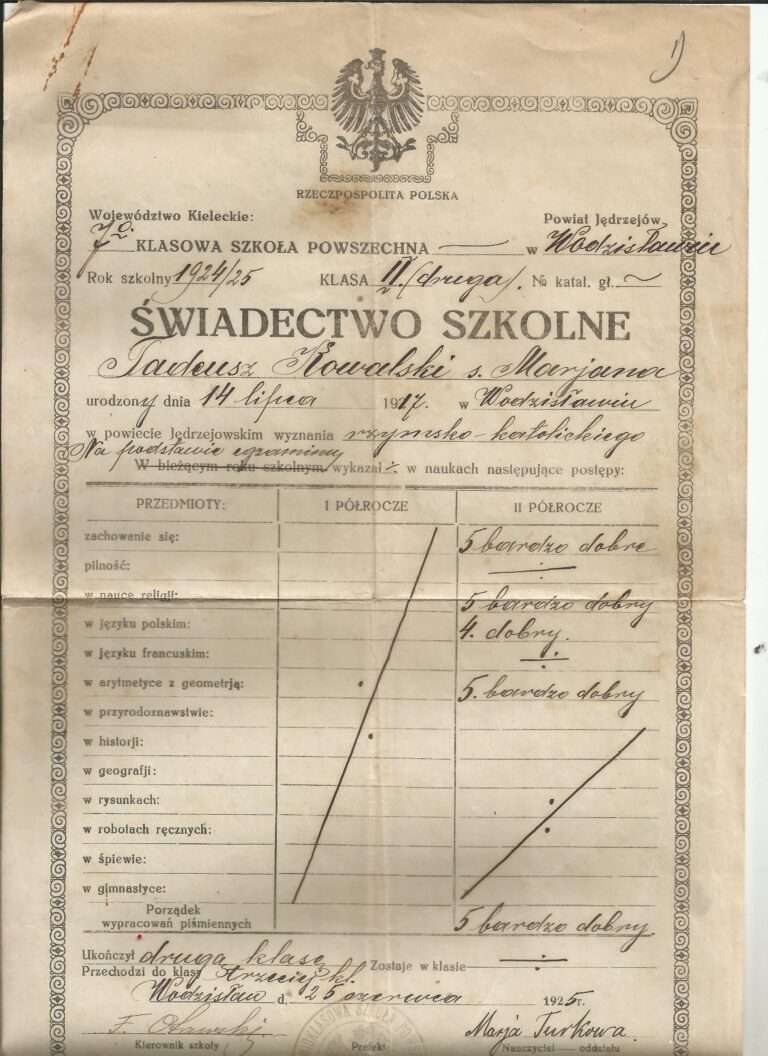 1)
RZECZPOSPOLITA POLSKA
Województwo Kieleckie: Powiat Jędrzejów
7o KLASOWA SZKOŁA POWSZECHNA — w Wodzisławiu
Rok szkolny 1924/25 KLASA II (druga). № katal. gł. ~
ŚWIADECTWO SZKOLNE
Tadeusz Kowalski s. Marjana
urodzony dnia 14 lipca 1917. w Wodzisławiu
w powiecie Jędrzejowskim wyznania rzymsko-katolickiego
Na podstawie egzaminu
W bieżącym roku szkolnym wykazał ÷ w naukach następujące postępy:
PRZEDMIOTY: I PÓŁROCZE II PÓŁROCZE
zachowanie się: 5 bardzo dobre
pilność: ÷
w nauce religji: 5 bardzo dobry
w języku polskim: 4. dobry.
w języku francuskim: ÷
w arytmetyce z geometrją: 5. bardzo dobry
w przyrodoznawstwie:
w historji:
w geografji:
w rysunkach:
w robotach ręcznych:
w śpiewie:
w gimnastyce:
Porządek
wypracowań piśmiennych 5 bardzo dobry
Ukończył drugą klasę
Przechodzi do klasy trzeciej kl. Zostaje w klasie ÷
Wodzisław d. 25 czerwca 1925 r.
F. Marja Turkowa.
Kierownik szkoły Prefekt Nauczyciel — oddziału
KLASOWA SZKOŁA POW